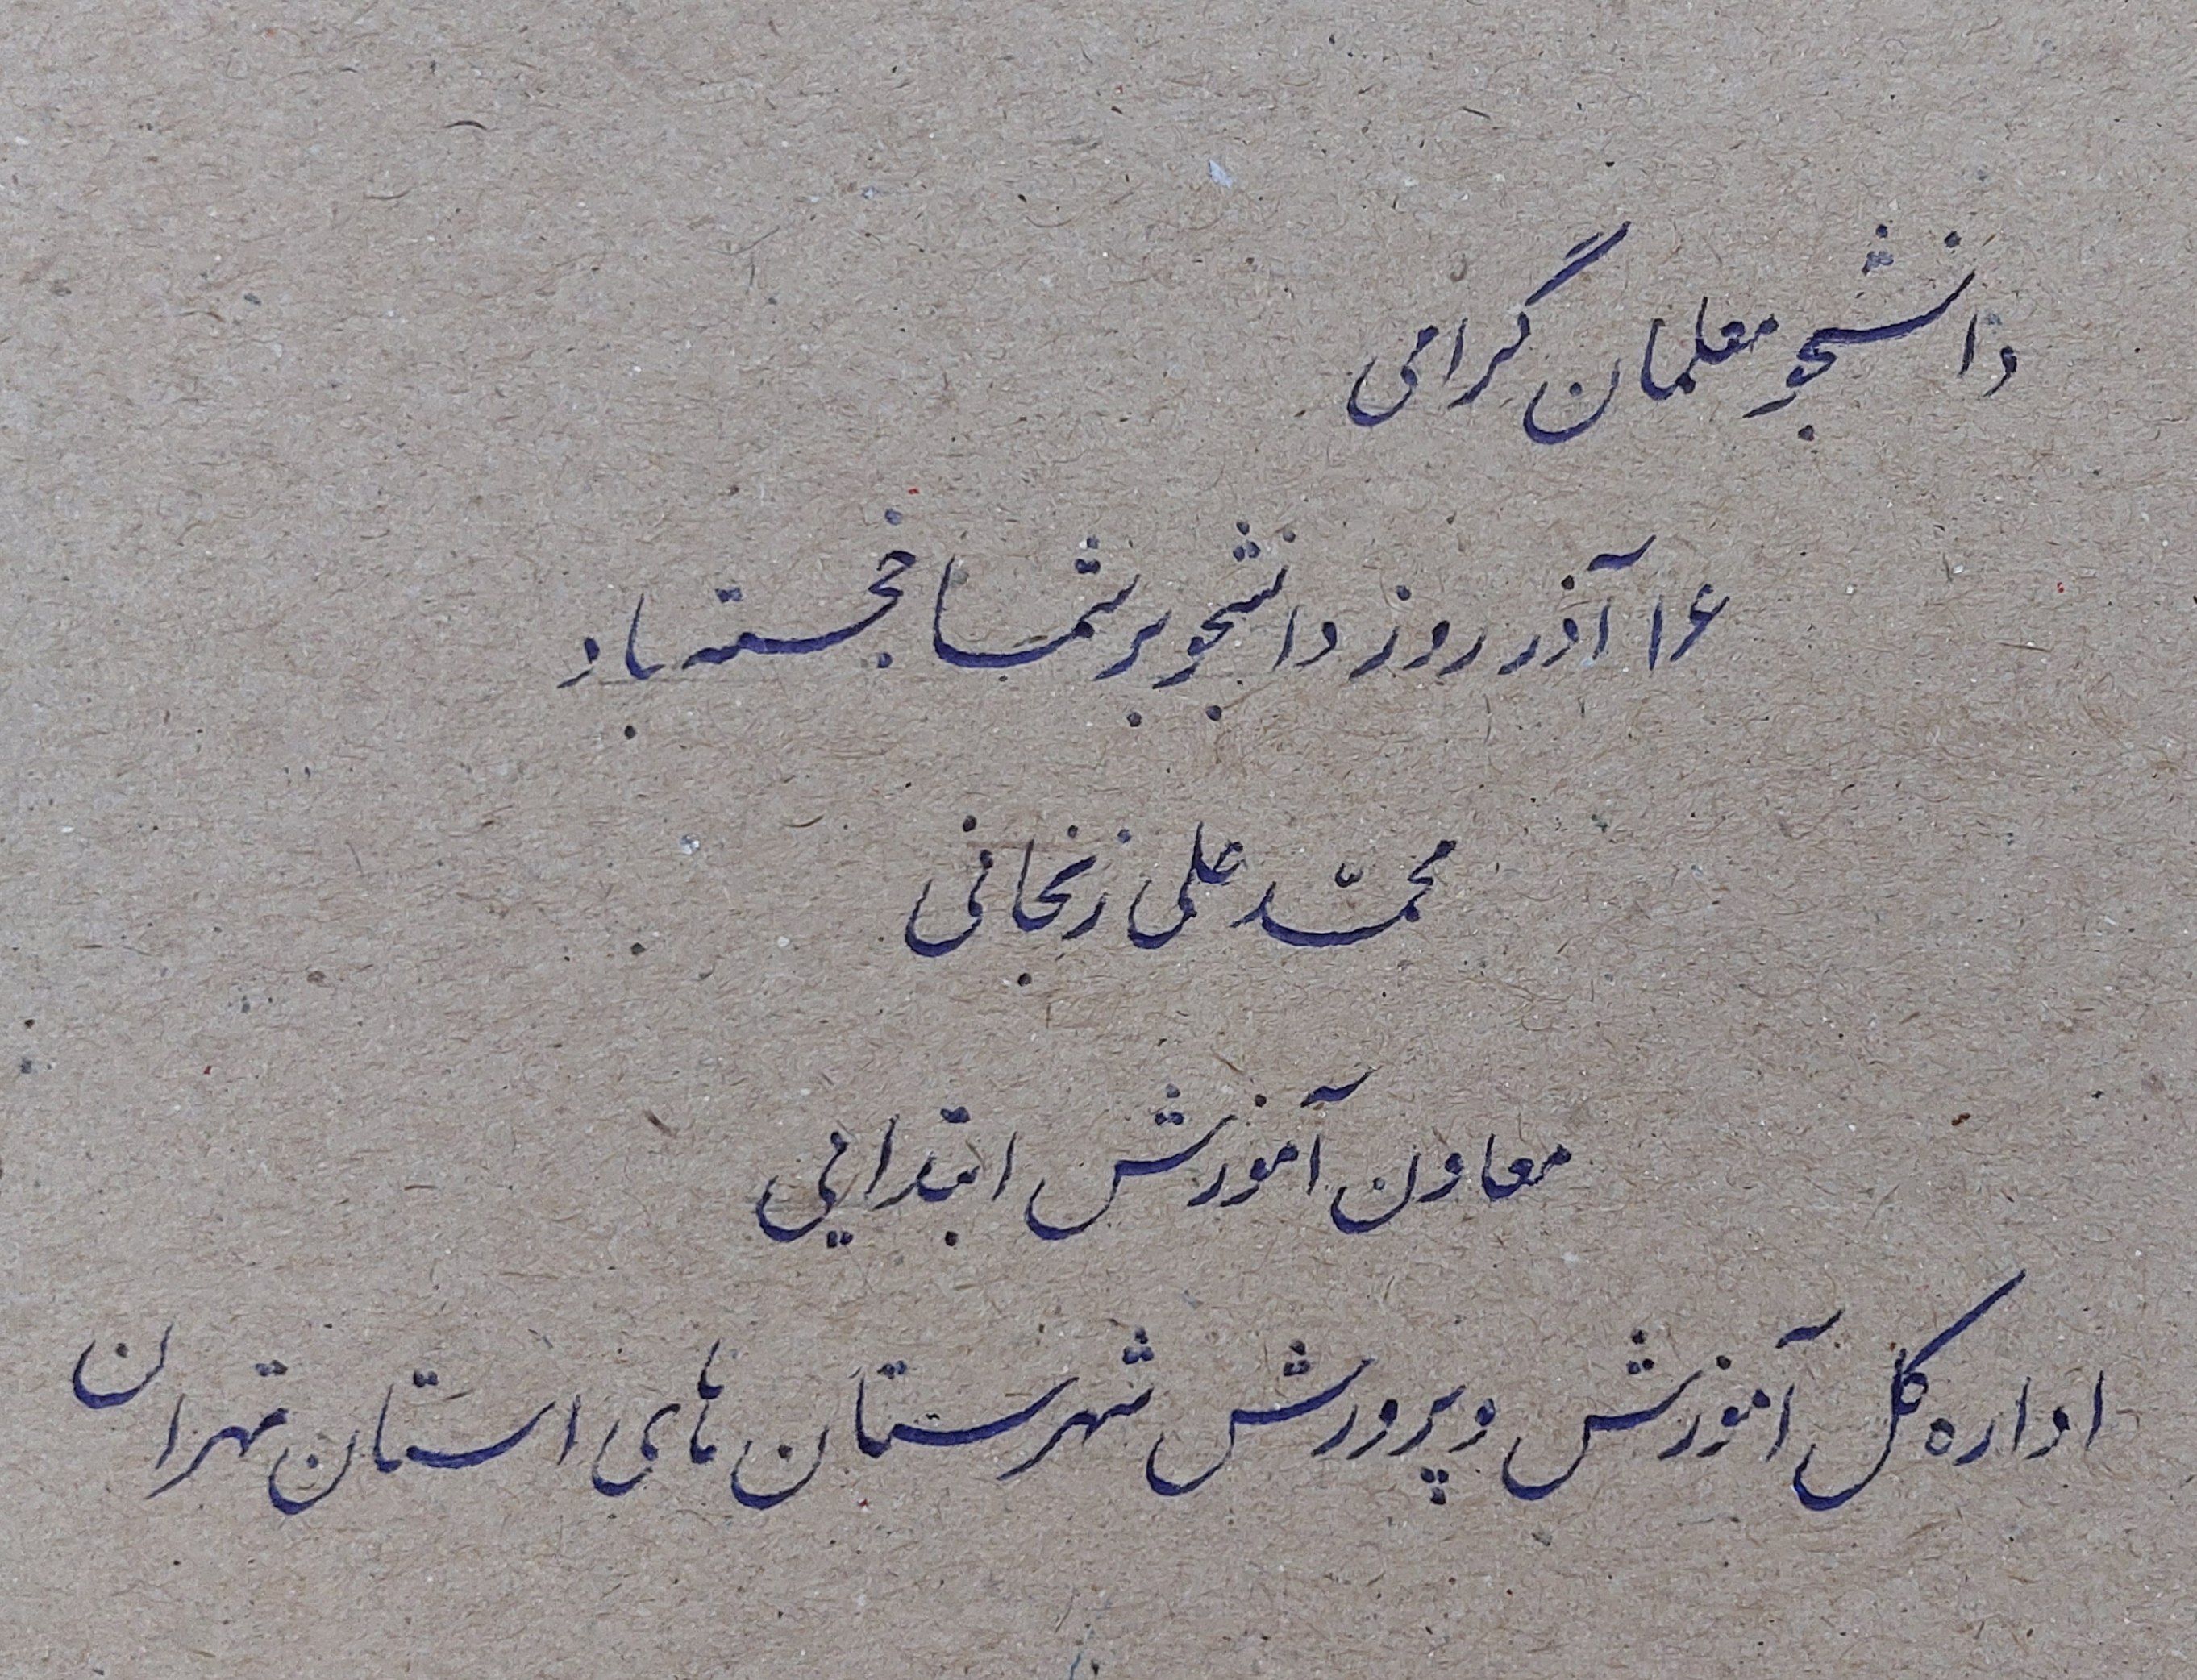 دانشجو معلمان گرامی
۱۶ آذر روز دانشجو بر شما خجسته باد
محمّد علی زنجانی
معاون آموزش ابتدایی
اداره کل آموزش و پرورش شهرستان های استان تهران